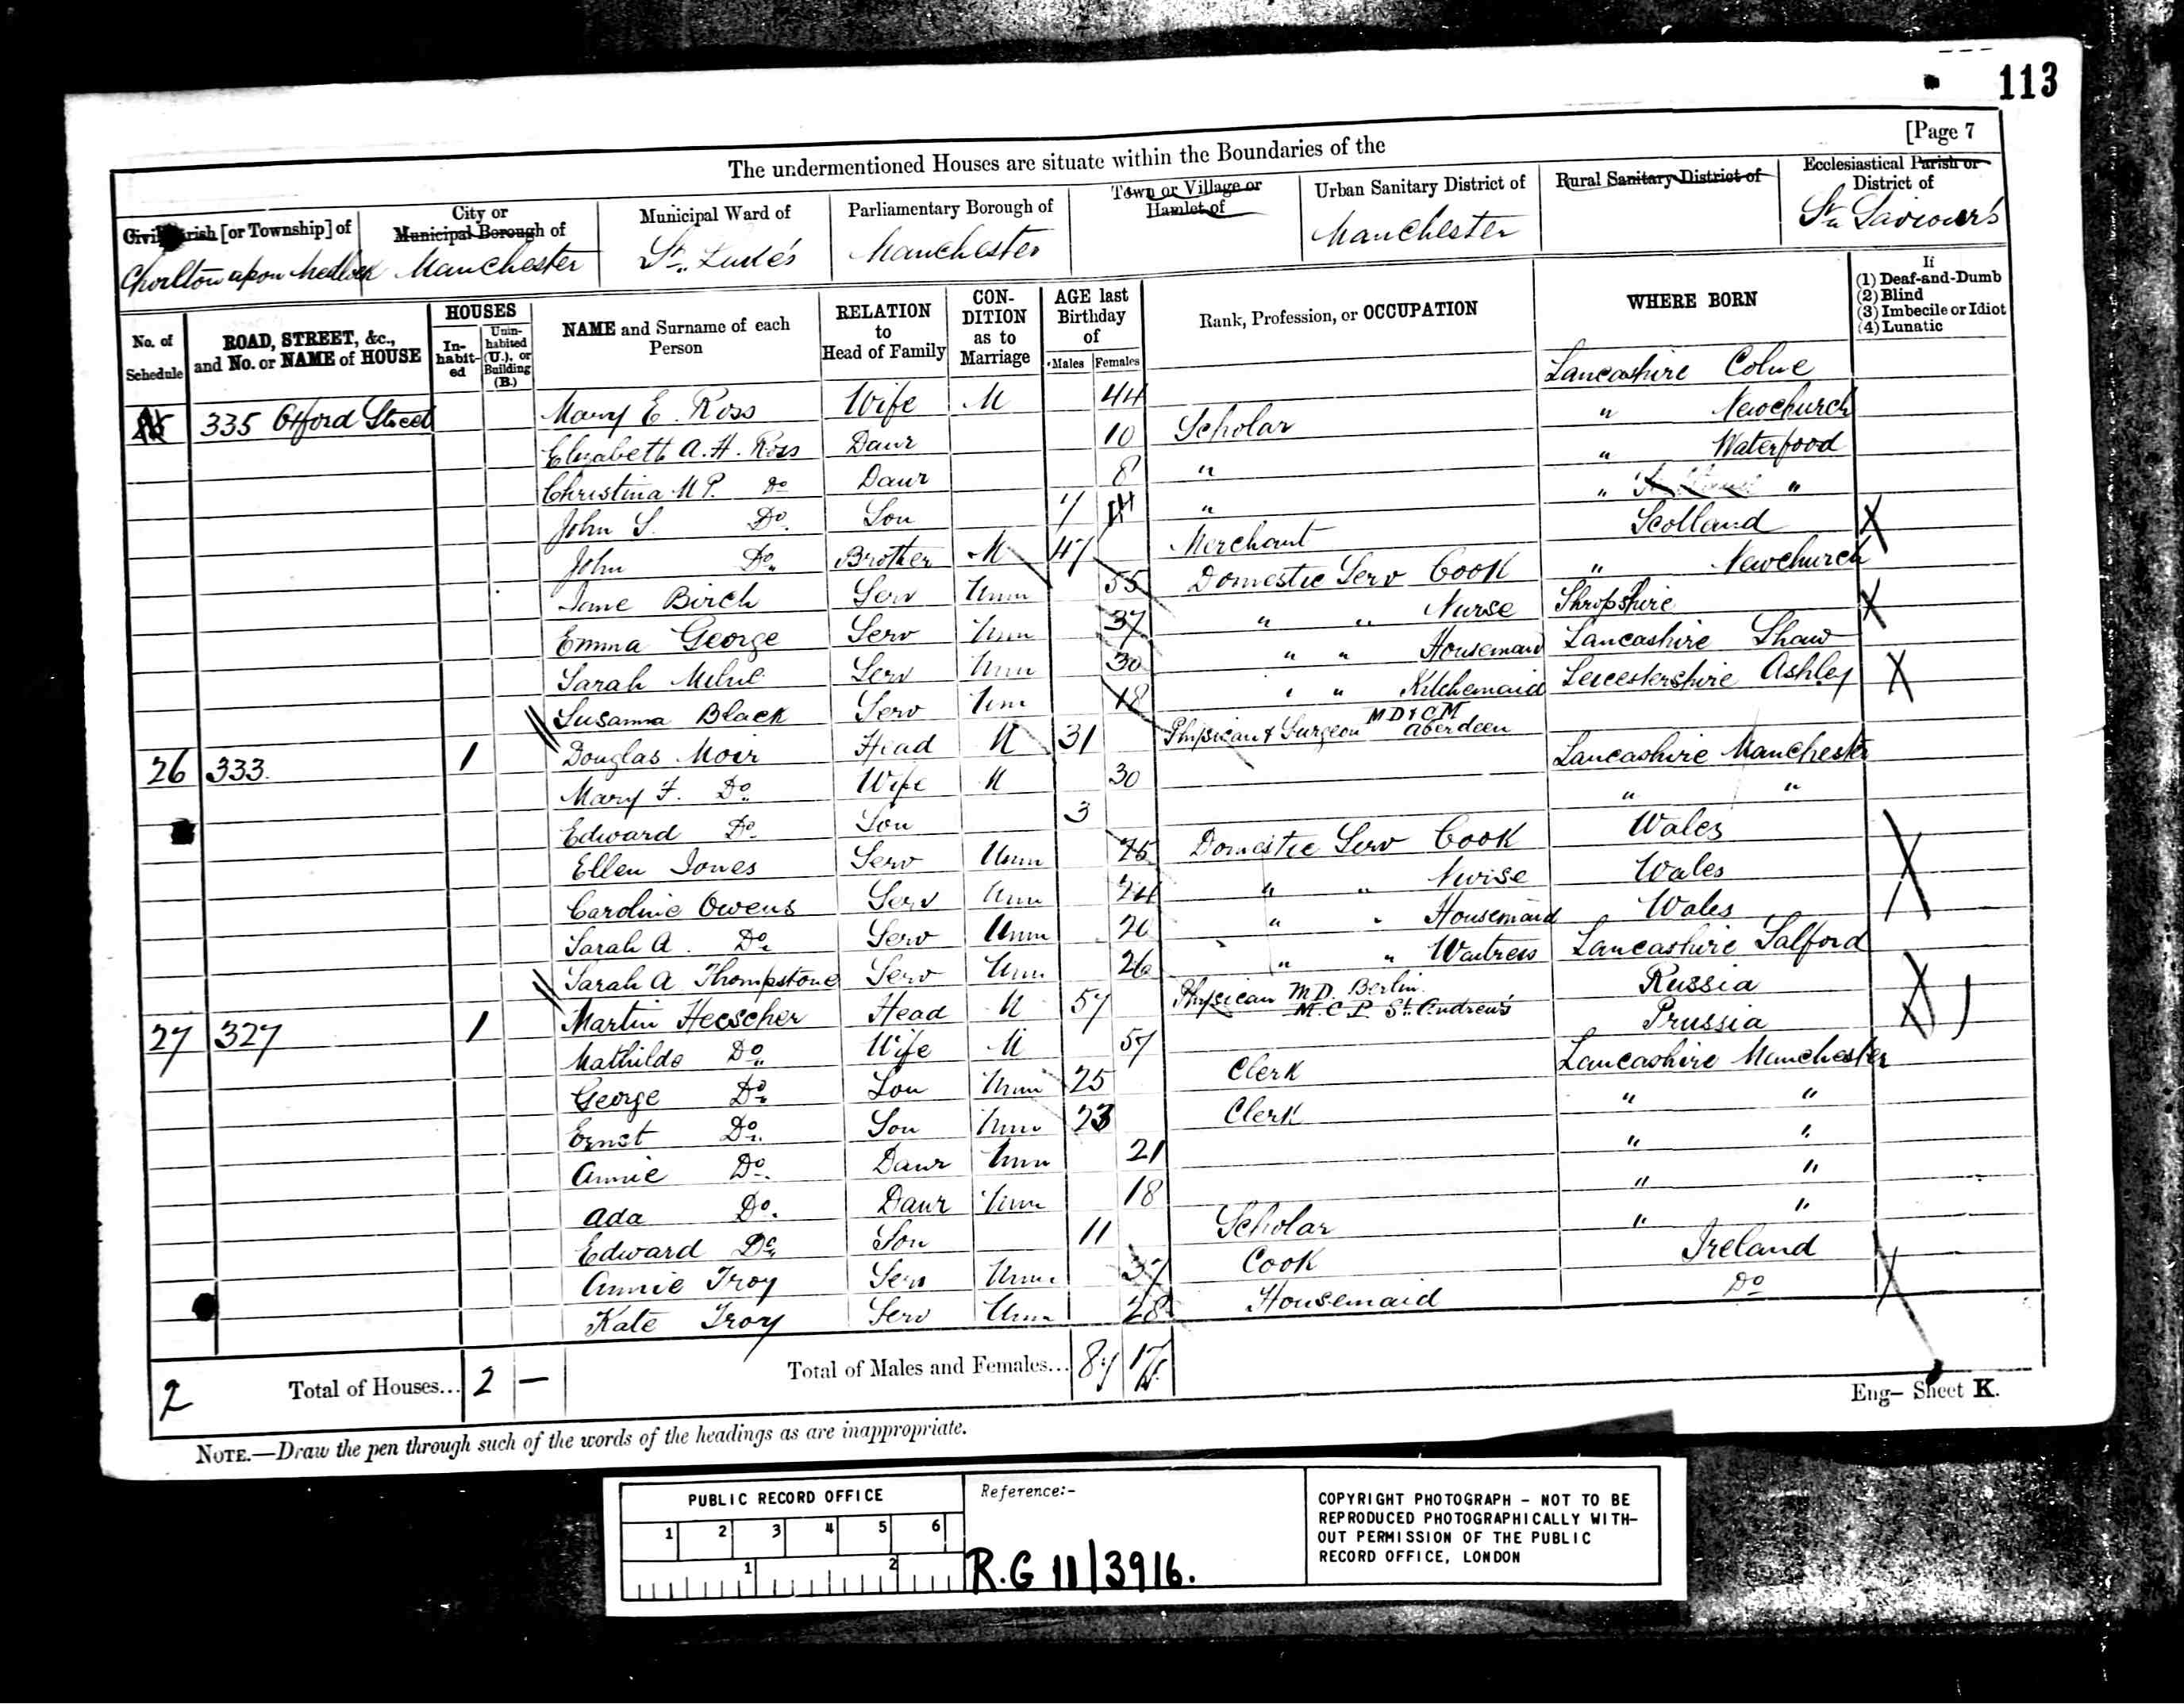 113
[Page 7
The undermentioned Houses are situate within the Boundaries of the
Civil Parish [or Township] of
City or Municipal Borough of
Municipal Ward of
Parliamentary Borough of
Town or Village or Hamlet of
Urban Sanitary District of
Rural Sanitary District of
Ecclesiastical Parish or District of
Chorlton upon Medlock Manchester St. Luke's Manchester Manchester St. Saviour's
No. of Schedule
ROAD, STREET, &c., and No. or NAME of HOUSE
HOUSES
In-habit-ed
Unin-habited (U.), or Building (B.)
NAME and Surname of each Person
RELATION to Head of Family
CON-DITION as to Marriage
AGE last Birthday of
Males Females
Rank, Profession, or OCCUPATION
WHERE BORN
If
(1) Deaf-and-Dumb
(2) Blind
(3) Imbecile or Idiot
(4) Lunatic
335 Oxford Street Mary E. Ross Wife M 44 Lancashire Colne
Elizabeth A. H. Ross Daur 10 Scholar " Newchurch
Christina M P. Do 8 Daur " " Waterfood
John S. Do. Son 7 " " "
John Do. Brother M 47 Merchant Scotland
Jane Birch Serv Unm 55 Domestic Serv Cook " Newchurch
Emma George Serv Unm 37 " " Nurse Shropshire
Sarah Milne Serv Unm 30 " " Housemaid Lancashire Shaw
Susanna Black Serv Unm 18 " " Kitchemaid Leicestershire Ashley
26 333. 1 Douglas Moir Head M 31 Physican & Surgeon M D & C M Aberdeen
Mary F. Do. Wife M 30 Lancashire Manchester
Edward Do. Son 3 " "
Ellen Jones Serv Unm 25 Domestic Serv Cook Wales
Caroline Owens Serv Unm 24 " " Nurse Wales
Sarah A. Do. Serv Unm 20 " " Housemaid Wales
Sarah A Thompstone Serv Unm 26 " " Waitress Lancashire Salford
27 327 1 Martin Heescher Head M 57 Physican M D. Berlin. M. C. P. St. Andrew's Russia
Mathilde Do. Wife M 57 Prussia
George Do. Son Unm 25 Clerk Lancashire Manchester
Ernst Do. Son Unm 23 Clerk " "
Annie Do. Daur Unm 21 " "
Ada Do. Daur Unm 18 " "
Edward Do. Son 11 Scholar " "
Annie Troy Serv Unm 37 Cook Ireland
Kate Troy Serv Unm 28 Housemaid Do
2 Total of Houses... 2 — Total of Males and Females... 8 17
Eng– Sheet K.
NOTE.—Draw the pen through such of the words of the headings as are inappropriate.
PUBLIC RECORD OFFICE
1 2 3 4 5 6
1 2
Reference:-
R.G 11/3916.
COPYRIGHT PHOTOGRAPH - NOT TO BE
REPRODUCED PHOTOGRAPHICALLY WITH-
OUT PERMISSION OF THE PUBLIC
RECORD OFFICE, LONDON